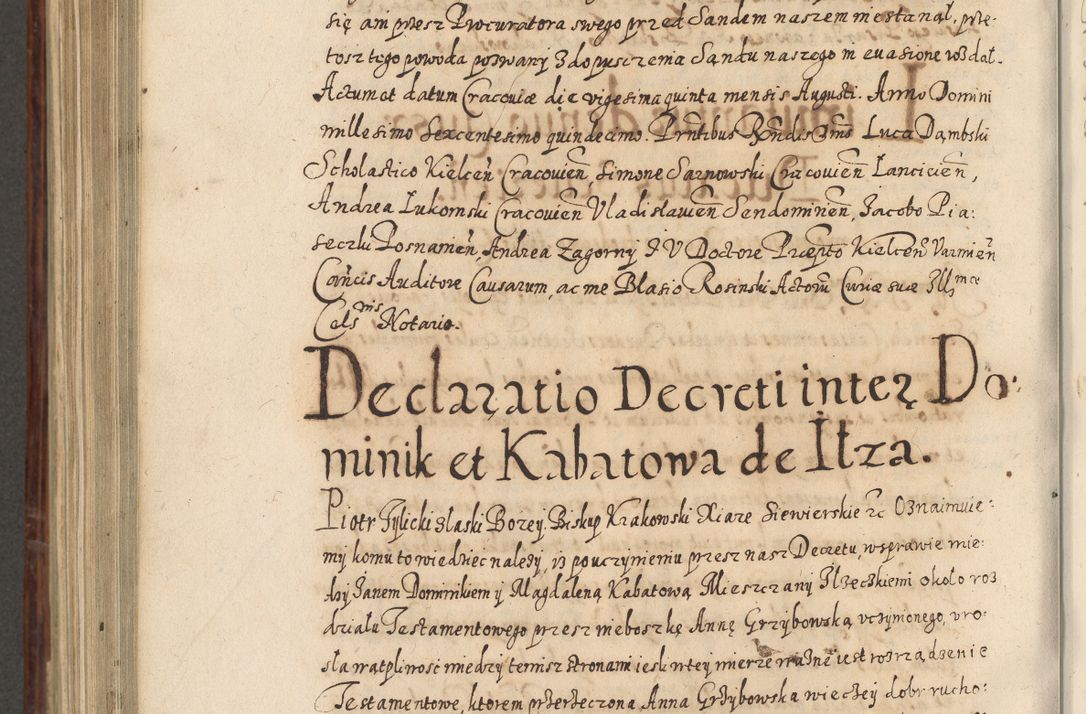 się ani przez Procuratora swego przed Sandem naszem nie stanął, prze-
tosz tego powoda pozwany z dopuszczenia Sandu naszego in evasione wzdał.
Actum et datum Cracoviæ die vigesima quinta mensis Augusti. Anno Domini
millesimo Sexcentesimo quindecimo. Prntibus Rndis Dnis Luca Dąmbski
Scholastico Kielceñ Cracovieñ, Simone Sarnowski Cracovieñ Lancicieñ,
Andrea Łukomski Cracovieñ Vladislavieñ Sendomireñ, Jacobo Pia:
seczki Posnanieñ, Andrea Zagorny J V Doctore Præpto Kielceñ Varmieñ
Cañcis Auditore Causarum, ac me Blasio Rosinski Actorũ Curiæ suæ Illmæ
Cels nis Notario.
Declaratio Decreti inter Do:
minik et Kabatowa de Iłza.
Piotr Tylicki z łaski Bozey Biskup Krakowski Xiaze Siewierskie etc Oznaimuie:
my komu to wiedziec nalezy, iz po uczynieniu przesz nasz Decretu, w sprawie mie:
dzy Janem Dominikiem y Magdaleną Kabatową Mieszczany Ilzeczkiemi około roz
działu Testamentowego przesz nieboszkę Annę Grzybowską uczynionego, uro:
sła wątpliwosc miedzy temisz stronami iesli w tey mierze wazne iest rozrządzenie
Testamentowe, ktorem przerzeczona Anna Grzybowska wieczey dobr rucho: